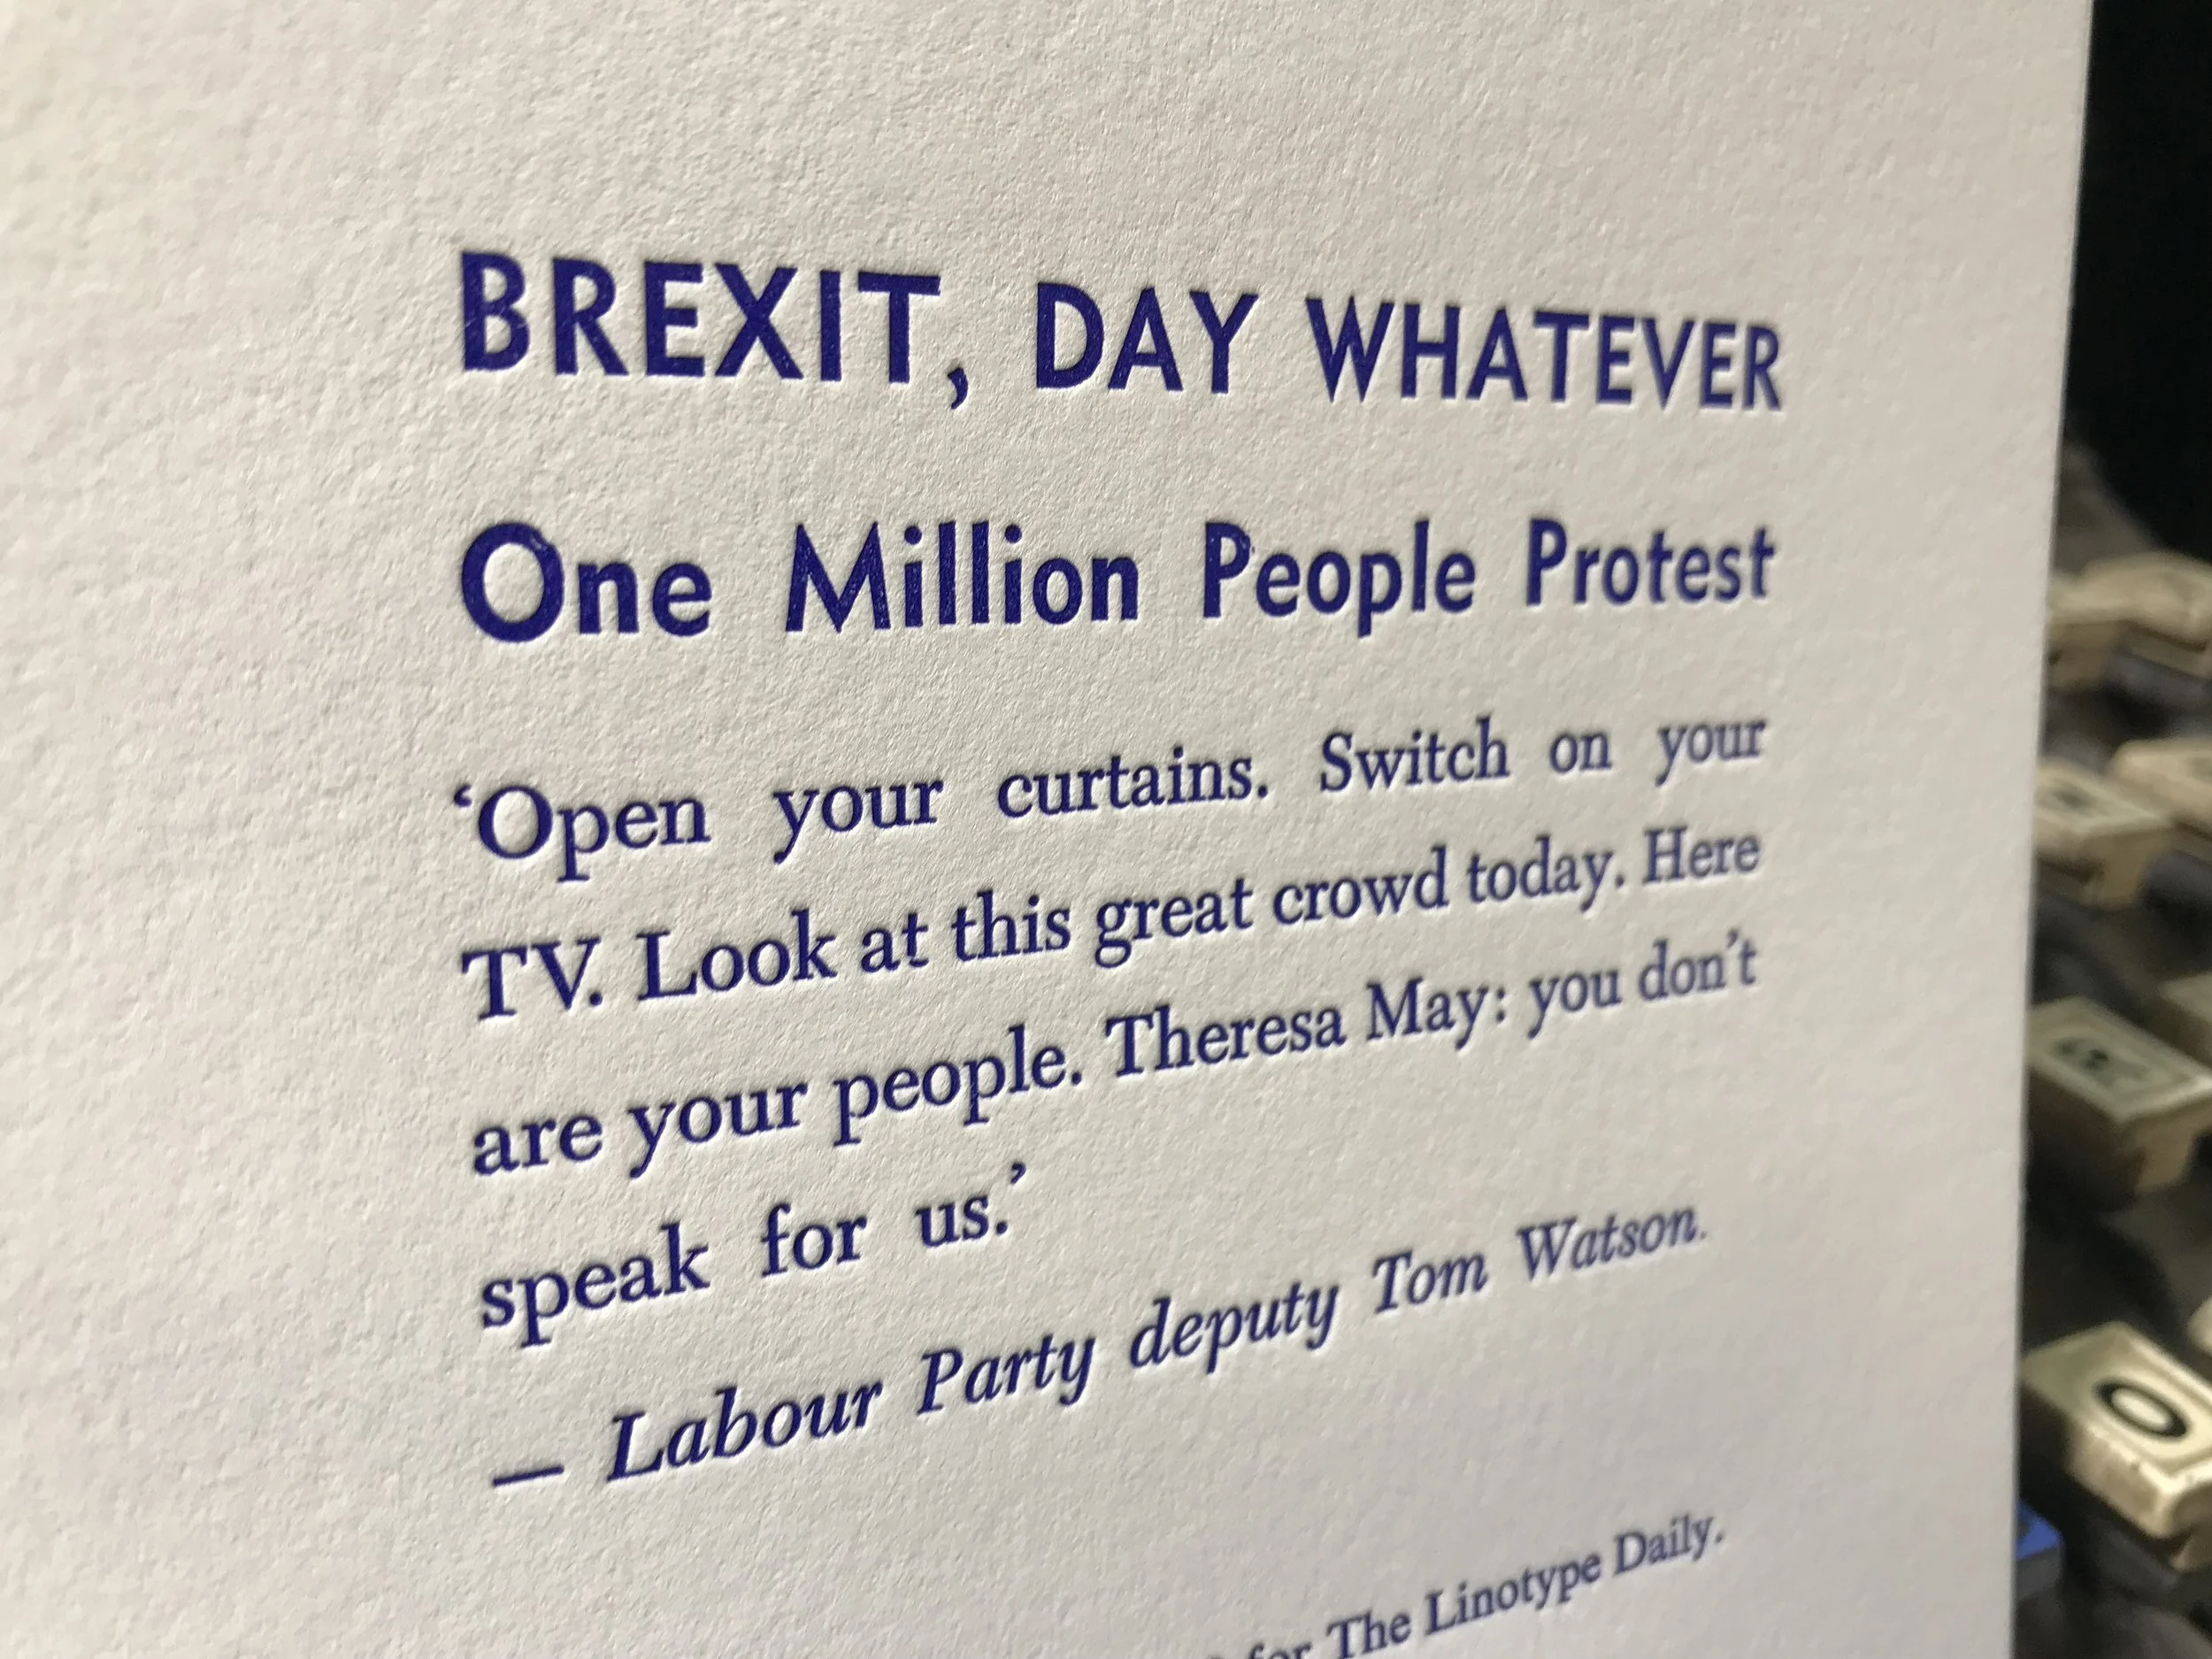 BREXIT, DAY WHATEVER
One Million People Protest
‘Open your curtains. Switch on your
TV. Look at this great crowd today. Here
are your people. Theresa May: you don’t
speak for us.’
— Labour Party deputy Tom Watson.
for The Linotype Daily.
O